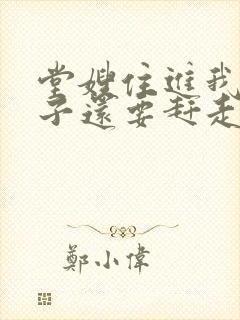 堂嫂住進我
子還要趕走
鄭小偉